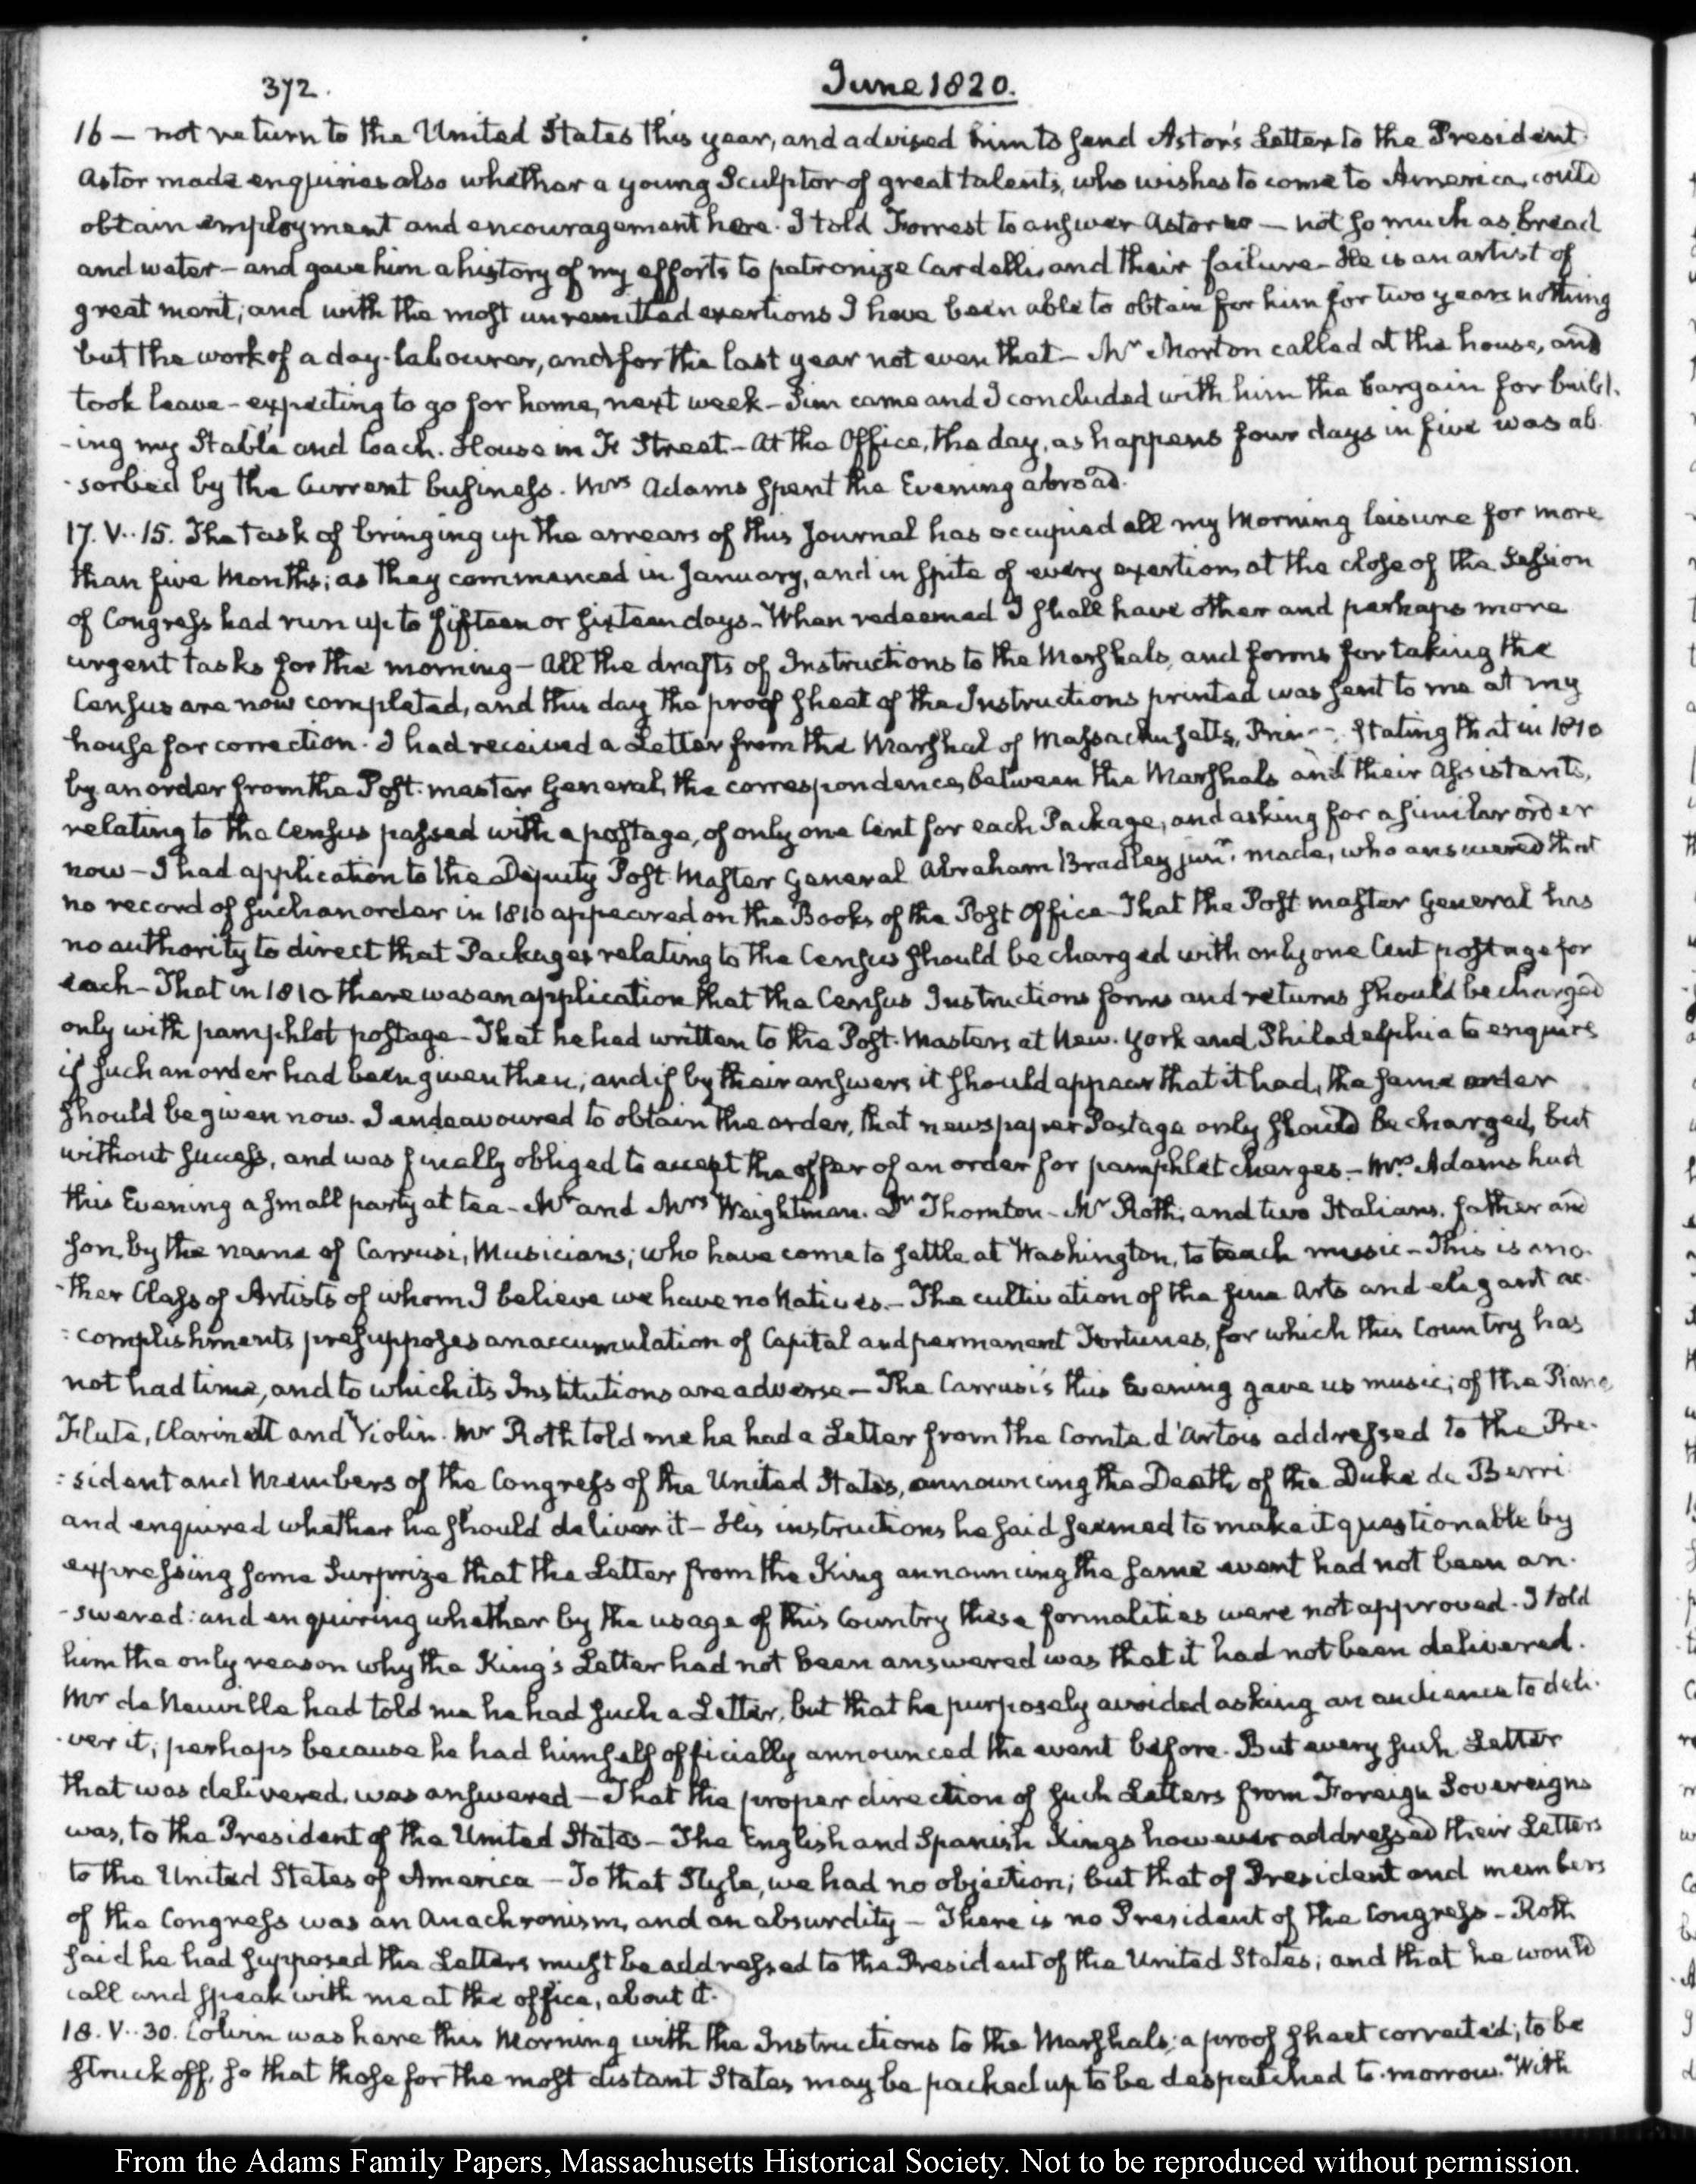 372.
June 1820.
16 — not return to the United States this year, and advised him to send Astor's Letter to the President.
Astor made enquiries also whether a young Sculptor of great talents, who wishes to come to America, could
obtain employment and encouragement here. I told Forrest to answer Astor no — not so much as bread
and water — and gave him a history of my efforts to patronize Cardelli, and their failure — He is an artist of
great merit; and with the most unremitted exertions I have been able to obtain for him for two years nothing
but the work of a day-labourer, and for the last year not even that — Mr Morton called at the house, and
took leave — expecting to go for home, next week — Sim came and I concluded with him the bargain for build-
-ing my Stable and Coach-House in F. Street — At the Office, the day, as happens four days in five was ab-
-sorbed by the Current business. Mrs Adams spent the Evening abroad.
17. V..15. The task of bringing up the arrears of this Journal has occupied all my Morning leisure for more
than five Months; as they commenced in January, and in spite of every exertion at the close of the Session
of Congress had run up to fifteen or sixteen days — When redeemed I shall have other and perhaps more
urgent tasks for the morning — All the drafts of Instructions to the Marshals, and forms for taking the
Census are now completed, and this day the proof sheet of the Instructions printed was sent to me at my
house for correction. I had received a Letter from the Marshal of Massachusetts, Prin--, stating that in 1810
by an order from the Post-master General, the correspondence between the Marshals and their Assistants,
relating to the Census passed with a postage, of only one Cent for each Package, and asking for a similar order
now — I had application to the Deputy Post Master General Abraham Bradley junr. made, who answered that
no record of such an order in 1810 appeared on the Books of the Post Office — That the Post master General has
no authority to direct that Packages relating to the Census should be charged with only one Cent postage for
each — That in 1810 there was an application that the Census Instructions forms and returns should be charged
only with pamphlet postage — That he had written to the Post-Masters at New-York and Philadelphia to enquire
if such an order had been given then; and if by their answers it should appear that it had, the same order
should be given now. I endeavoured to obtain the order, that newspaper Postage only should be charged, but
without success, and was finally obliged to accept the offer of an order for pamphlet charges. — Mrs Adams had
this Evening a small party at tea — Mr and Mrs Weightman. Dr Thornton — Mr Roth, and two Italians, father and
son, by the name of Carrusi, Musicians; who have come to settle at Washington, to teach music — This is ano-
-ther Class of Artists of whom I believe we have no Natives. — The cultivation of the fine Arts and elegant ac-
:complishments presupposes an accumulation of Capital and permanent Fortunes, for which this Country has
not had time, and to which its Institutions are adverse — The Carrusi's this Evening gave us music, of the Piano
Flute, Clarinett and Violin. Mr Roth told me he had a Letter from the Comte d'Artois addressed to the Pre-
:sident and Members of the Congress of the United States, announcing the Death of the Duke de Berri
and enquired whether he should deliver it — His instructions he said seemed to make it questionable by
expressing some Surprize that the Letter from the King announcing the same event had not been an-
-swered: and enquiring whether by the usage of this Country these formalities were not approved. I told
him the only reason why the King's Letter had not been answered was that it had not been delivered.
Mr de Neuville had told me he had such a Letter, but that he purposely avoided asking an audience to deli-
-ver it; perhaps because he had himself officially announced the event before. But every such Letter
that was delivered, was answered — That the proper direction of such Letters from Foreign Sovereigns
was, to the President of the United States — The English and Spanish Kings however addressed their Letters
to the United States of America — To that Style, we had no objection; but that of President and members
of the Congress was an Anachronism, and an absurdity — There is no President of the Congress — Roth
said he had supposed the Letters must be addressed to the President of the United States; and that he would
call and speak with me at the office, about it.
18. V..30. Colvin was here this Morning with the Instructions to the Marshals; a proof sheet corrected; to be
struck off, so that those for the most distant States may be packed up to be despatched to-morrow. With
From the Adams Family Papers, Massachusetts Historical Society. Not to be reproduced without permission.